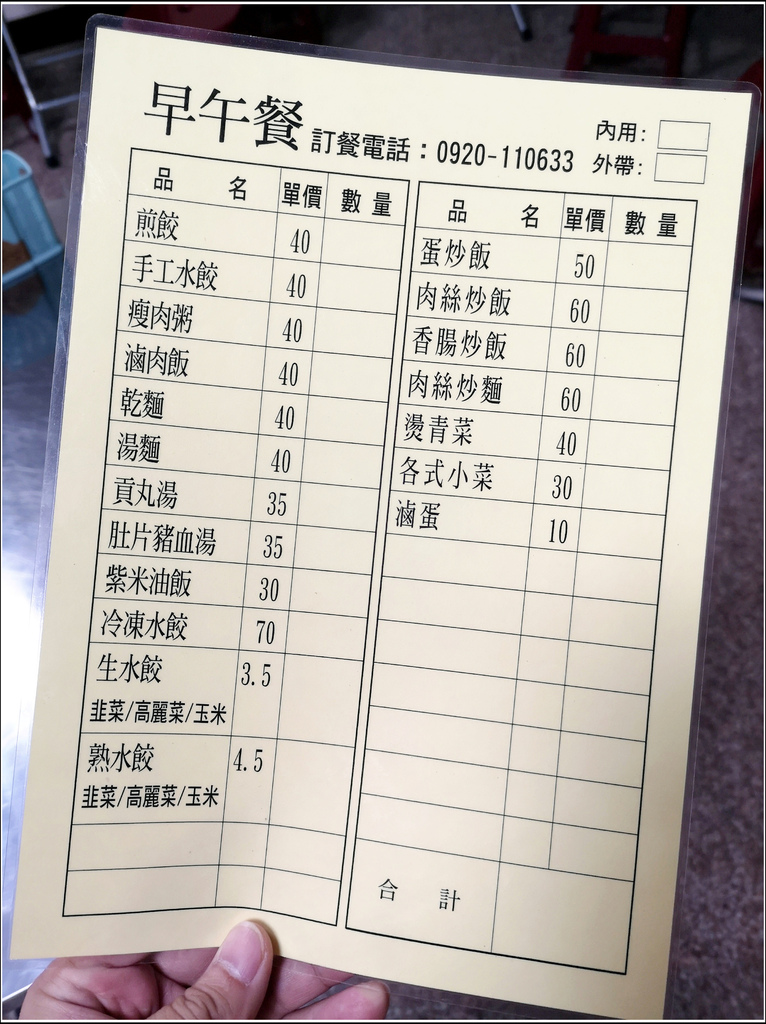 早午餐 訂餐電話：0920-110633
內用：
外帶：
品名 單價 數量
煎餃 40
手工水餃 40
瘦肉粥 40
滷肉飯 40
乾麵 40
湯麵 40
貢丸湯 35
肚片豬血湯 35
紫米油飯 30
冷凍水餃 70
生水餃 3.5
韭菜/高麗菜/玉米
熟水餃 4.5
韭菜/高麗菜/玉米
品名 單價 數量
蛋炒飯 50
肉絲炒飯 60
香腸炒飯 60
肉絲炒麵 60
燙青菜 40
各式小菜 30
滷蛋 10
合計